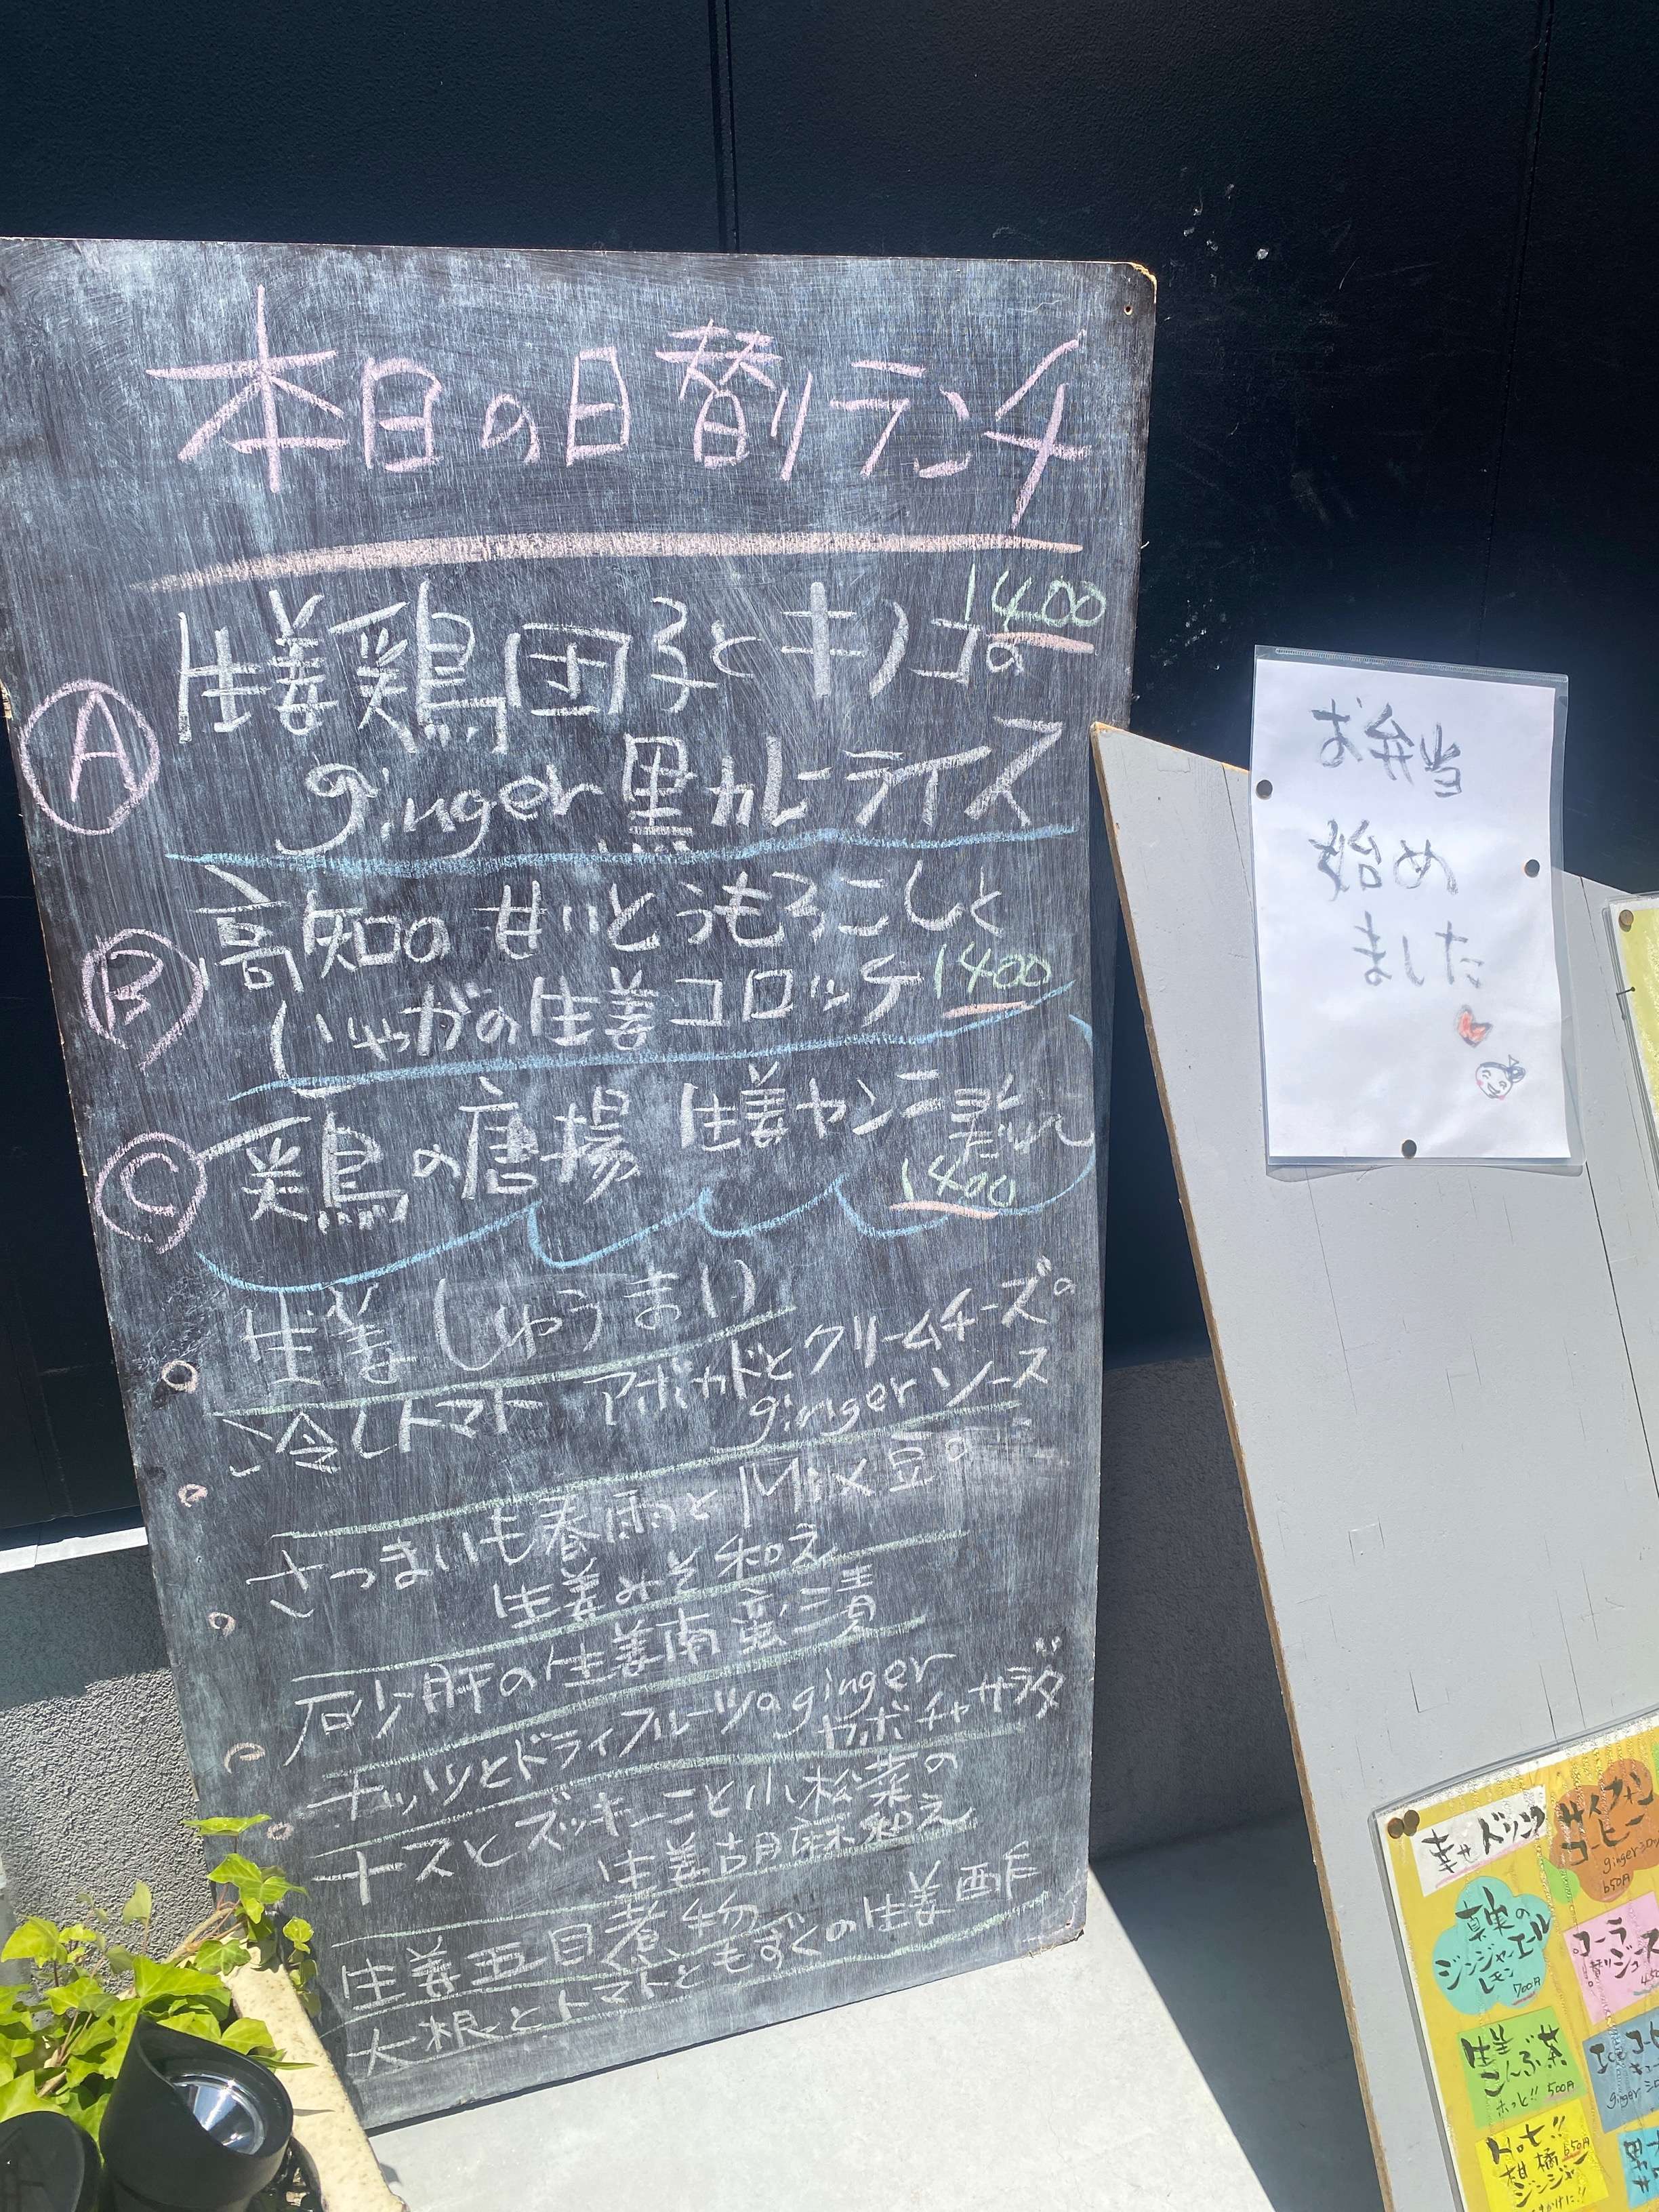 本日の日替りランチ
生姜鶏団子とキノコの
1400
Ⓐ
ginger黒カレーライス
高知の甘いとうもろこしと
Ⓑ
じゃがの生姜コロッケ 1400
Ⓒ
鶏の唐揚 生姜ヤンニョム
だれ
1400
生姜しゅうまい
冷しトマト アボカドとクリームチーズの
gingerソース
さつまいも春雨とMix豆の
生姜みそ和え
砂肝の生姜南蛮漬
ナッツとドライフルーツのginger
カボチャサラダ
ナスとズッキーニと小松菜の
生姜胡麻和え
生姜五目煮物
大根とトマトともずくの生姜酢
お弁当
始め
ました
幸せドリンク
サイフォン
コーヒー
650円
真実の
ジンジャーエール
レモン
700円
コーラ
生姜
こんぶ茶
ホッと!! 500円
Hot!!
650円
柑橘
ジンジャー